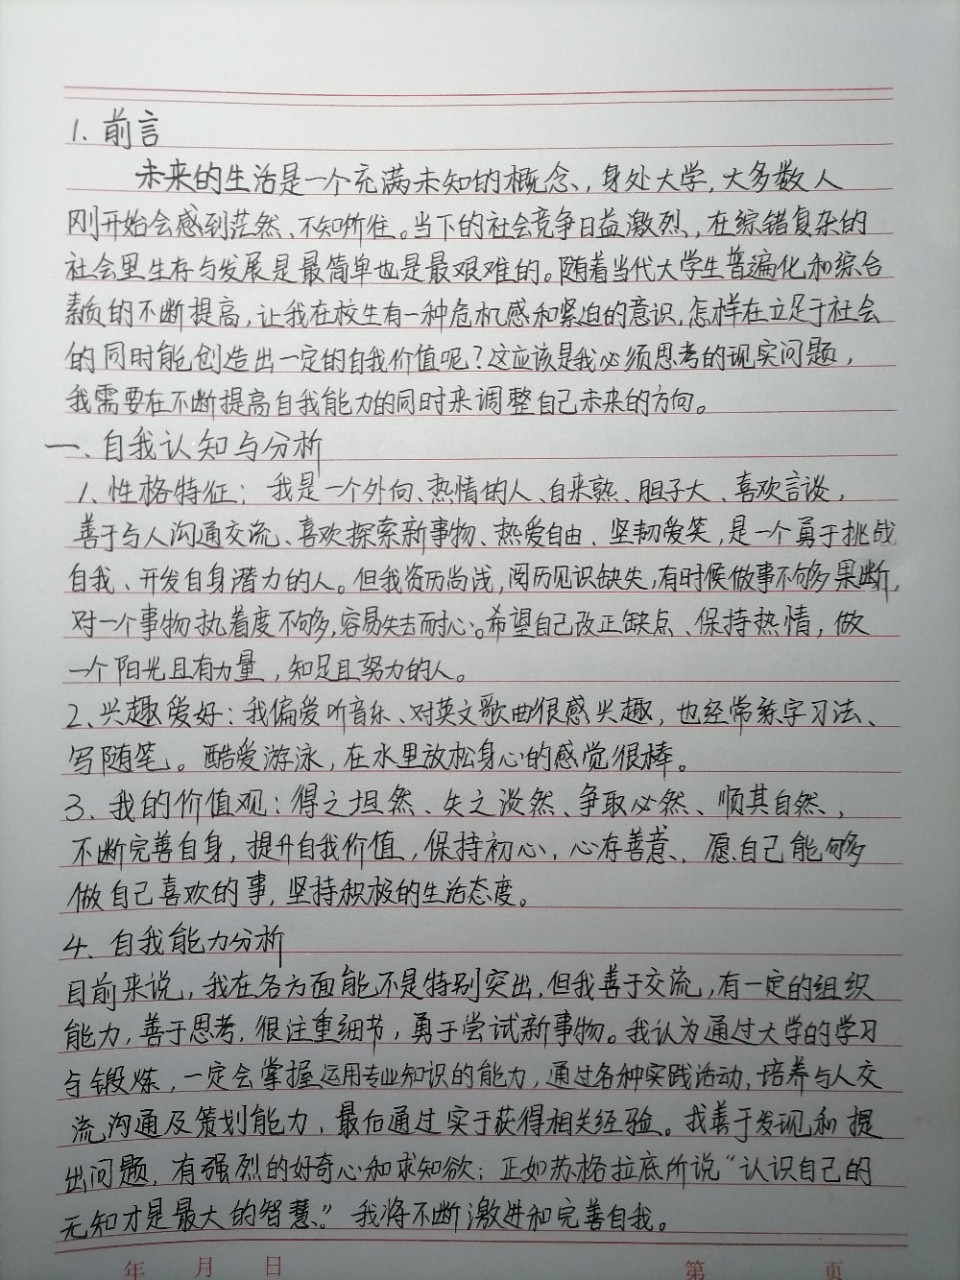 1. 前言
未来的生活是一个充满未知的概念、，身处大学，大多数人
刚开始会感到茫然、不知所往。当下的社会竞争日益激烈，在综错复杂的
社会里生存与发展是最简单也是最艰难的。随着当代大学生普遍化和综合
素质的不断提高，让我在校生有一种危机感和紧迫的意识，怎样在立足于社会
的同时能创造出一定的自我价值呢？这应该是我必须思考的现实问题，
我需要在不断提高自我能力的同时来调整自己未来的方向。
一、自我认知与分析
1、性格特征：我是一个外向、热情的人、自来熟、胆子大、喜欢言谈，
善于与人沟通交流、喜欢探索新事物、热爱自由、坚韧爱笑，是一个勇于挑战
自我、开发自身潜力的人。但我资历尚浅，阅历见识缺失，有时候做事不够果断，
对一个事物执着度不够，容易失去耐心。希望自己改正缺点、保持热情，做
一个阳光且有力量，知足且努力的人。
2、兴趣爱好：我偏爱听音乐、对英文歌曲很感兴趣，也经常练字习法、
写随笔。酷爱游泳，在水里放松身心的感觉很棒。
3、我的价值观：得之坦然、失之淡然、争取必然、顺其自然、，
不断完善自身，提升自我价值，保持初心，心存善意、愿自己能够
做自己喜欢的事，坚持积极的生活态度。
4、自我能力分析
目前来说，我在各方面能不是特别突出，但我善于交流，有一定的组织
能力，善于思考，很注重细节，勇于尝试新事物。我认为通过大学的学习
与锻炼，一定会掌握运用专业知识的能力，通过各种实践活动，培养与人交
流沟通及策划能力，最后通过实于获得相关经验。我善于发现和提
出问题，有强烈的好奇心和求知欲；正如苏格拉底所说“认识自己的
无知才是最大的智慧、”我将不断激进和完善自我。
年 月 日 第 页